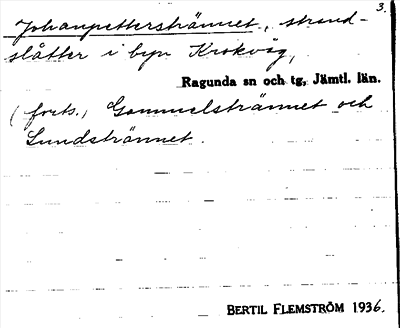 3.
Johanpetterstrännet, strand-
slåtter i byn Krokvåg,
Ragunda sn och tg, Jämtl. län.
(forts.) Gammelstrännet och
Sundstrännet.
BERTIL FLEMSTRÖM 1936.